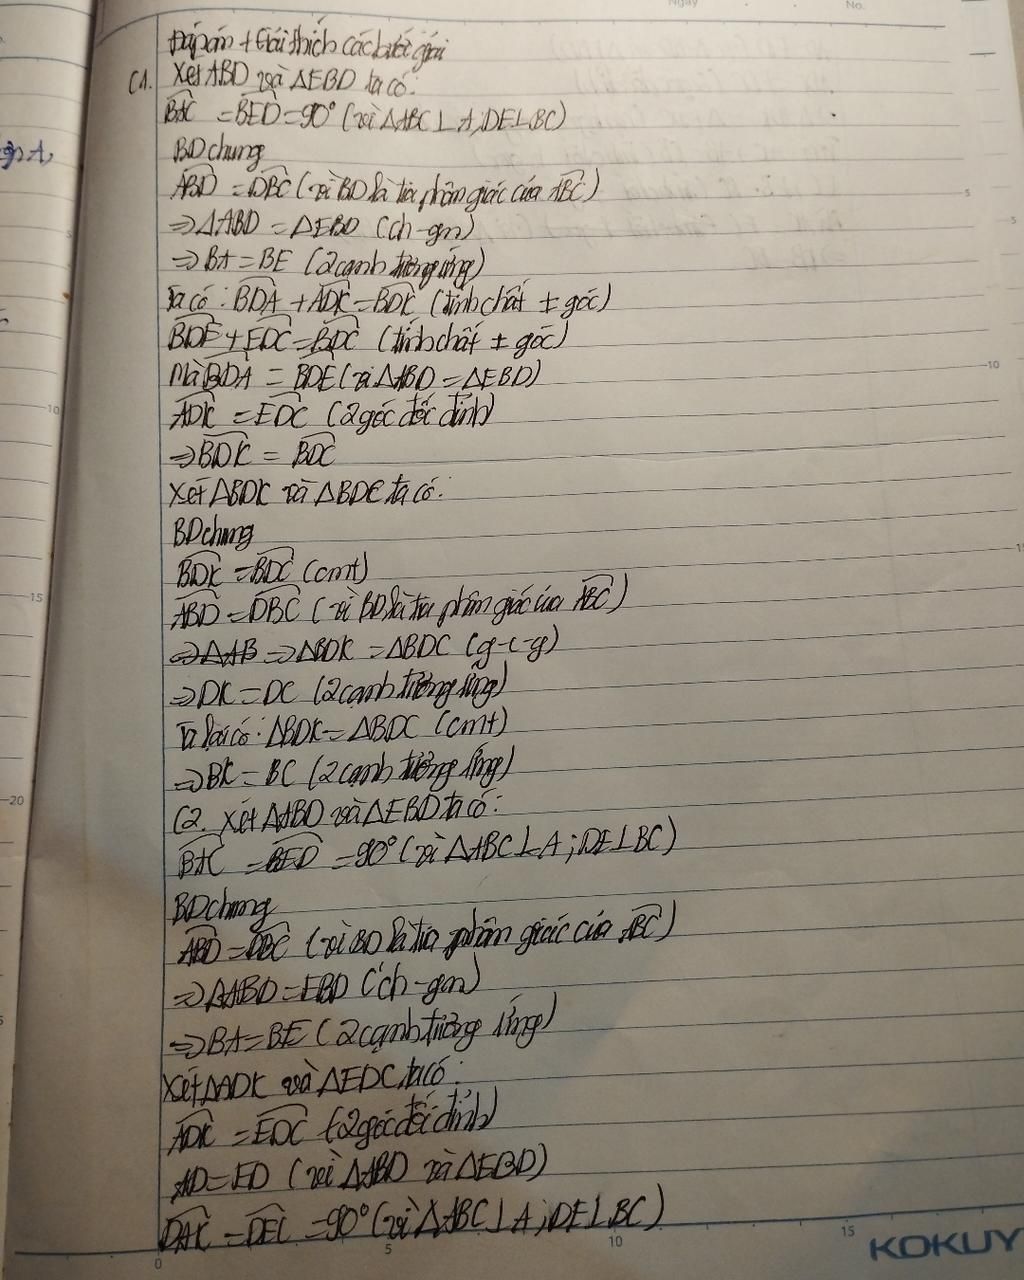 Đáp án + Giải thích các bước giải
C1. Xét ABD và ΔEBD ta có:
BAC = BED = 90° (vì ΔABC ⊥ A; DE ⊥ BC)
BD chung
ABD = DBC (vì BD là tia phân giác của ABC)
⇒ ΔABD = ΔEBD (ch-gn)
⇒ BA = BE (2 cạnh tương ứng)
Ta có: BDA + ADK = BDK (tính chất ± góc)
BDE + EDC = BDC (tính chất ± góc)
Mà BDA = BDE (vì ΔABD = ΔEBD)
ADK = EDC (2 góc đối đỉnh)
⇒ BDK = BDC
Xét ΔBDK và ΔBDC ta có:
BD chung
BDK = BDC (cmt)
ABD = DBC (vì BD là tia phân giác của ABC)
⇒ ΔAB ⇒ ΔBDK = ΔBDC (g-c-g)
⇒ DK = DC (2 cạnh tương ứng)
Ta lại có: ΔBDK = ΔBDC (cmt)
⇒ BK = BC (2 cạnh tương ứng)
C2. Xét ΔABD và ΔEBD ta có:
BAC = BED = 90° (vì ΔABC ⊥ A; DE ⊥ BC)
BD chung
ABD = DBC (vì BD là tia phân giác của ABC)
⇒ ΔABD = EBD (ch-gn)
⇒ BA = BE (2 cạnh tương ứng)
Xét ΔADK và ΔEDC ta có:
ADK = EDC (2 góc đối đỉnh)
AD = ED (vì ΔABD và ΔEBD)
DAK = DEC = 90° (vì ΔABC ⊥ A; DE ⊥ BC)
5
10
15
KOKUY